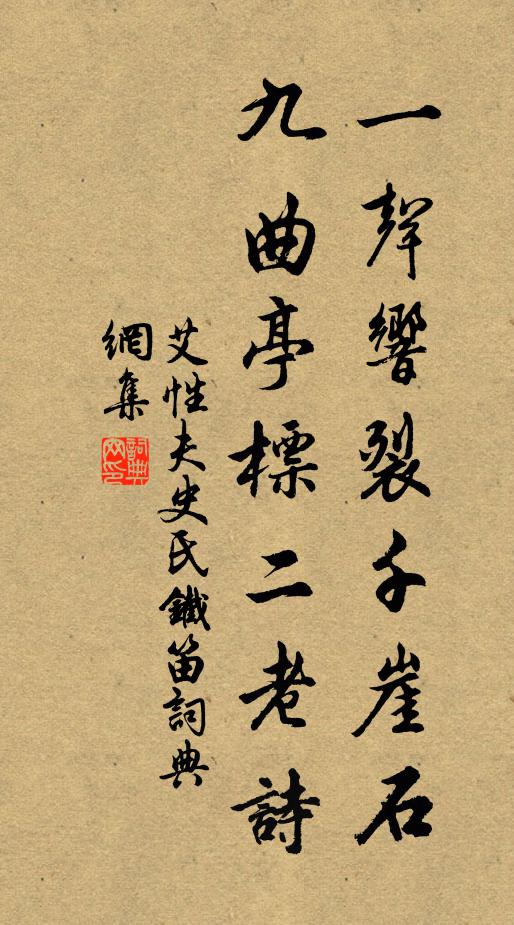 一聲響裂千崖石
九曲亭標二老詩
艾性夫史氏鐵笛詞典
網集
詞典
网印